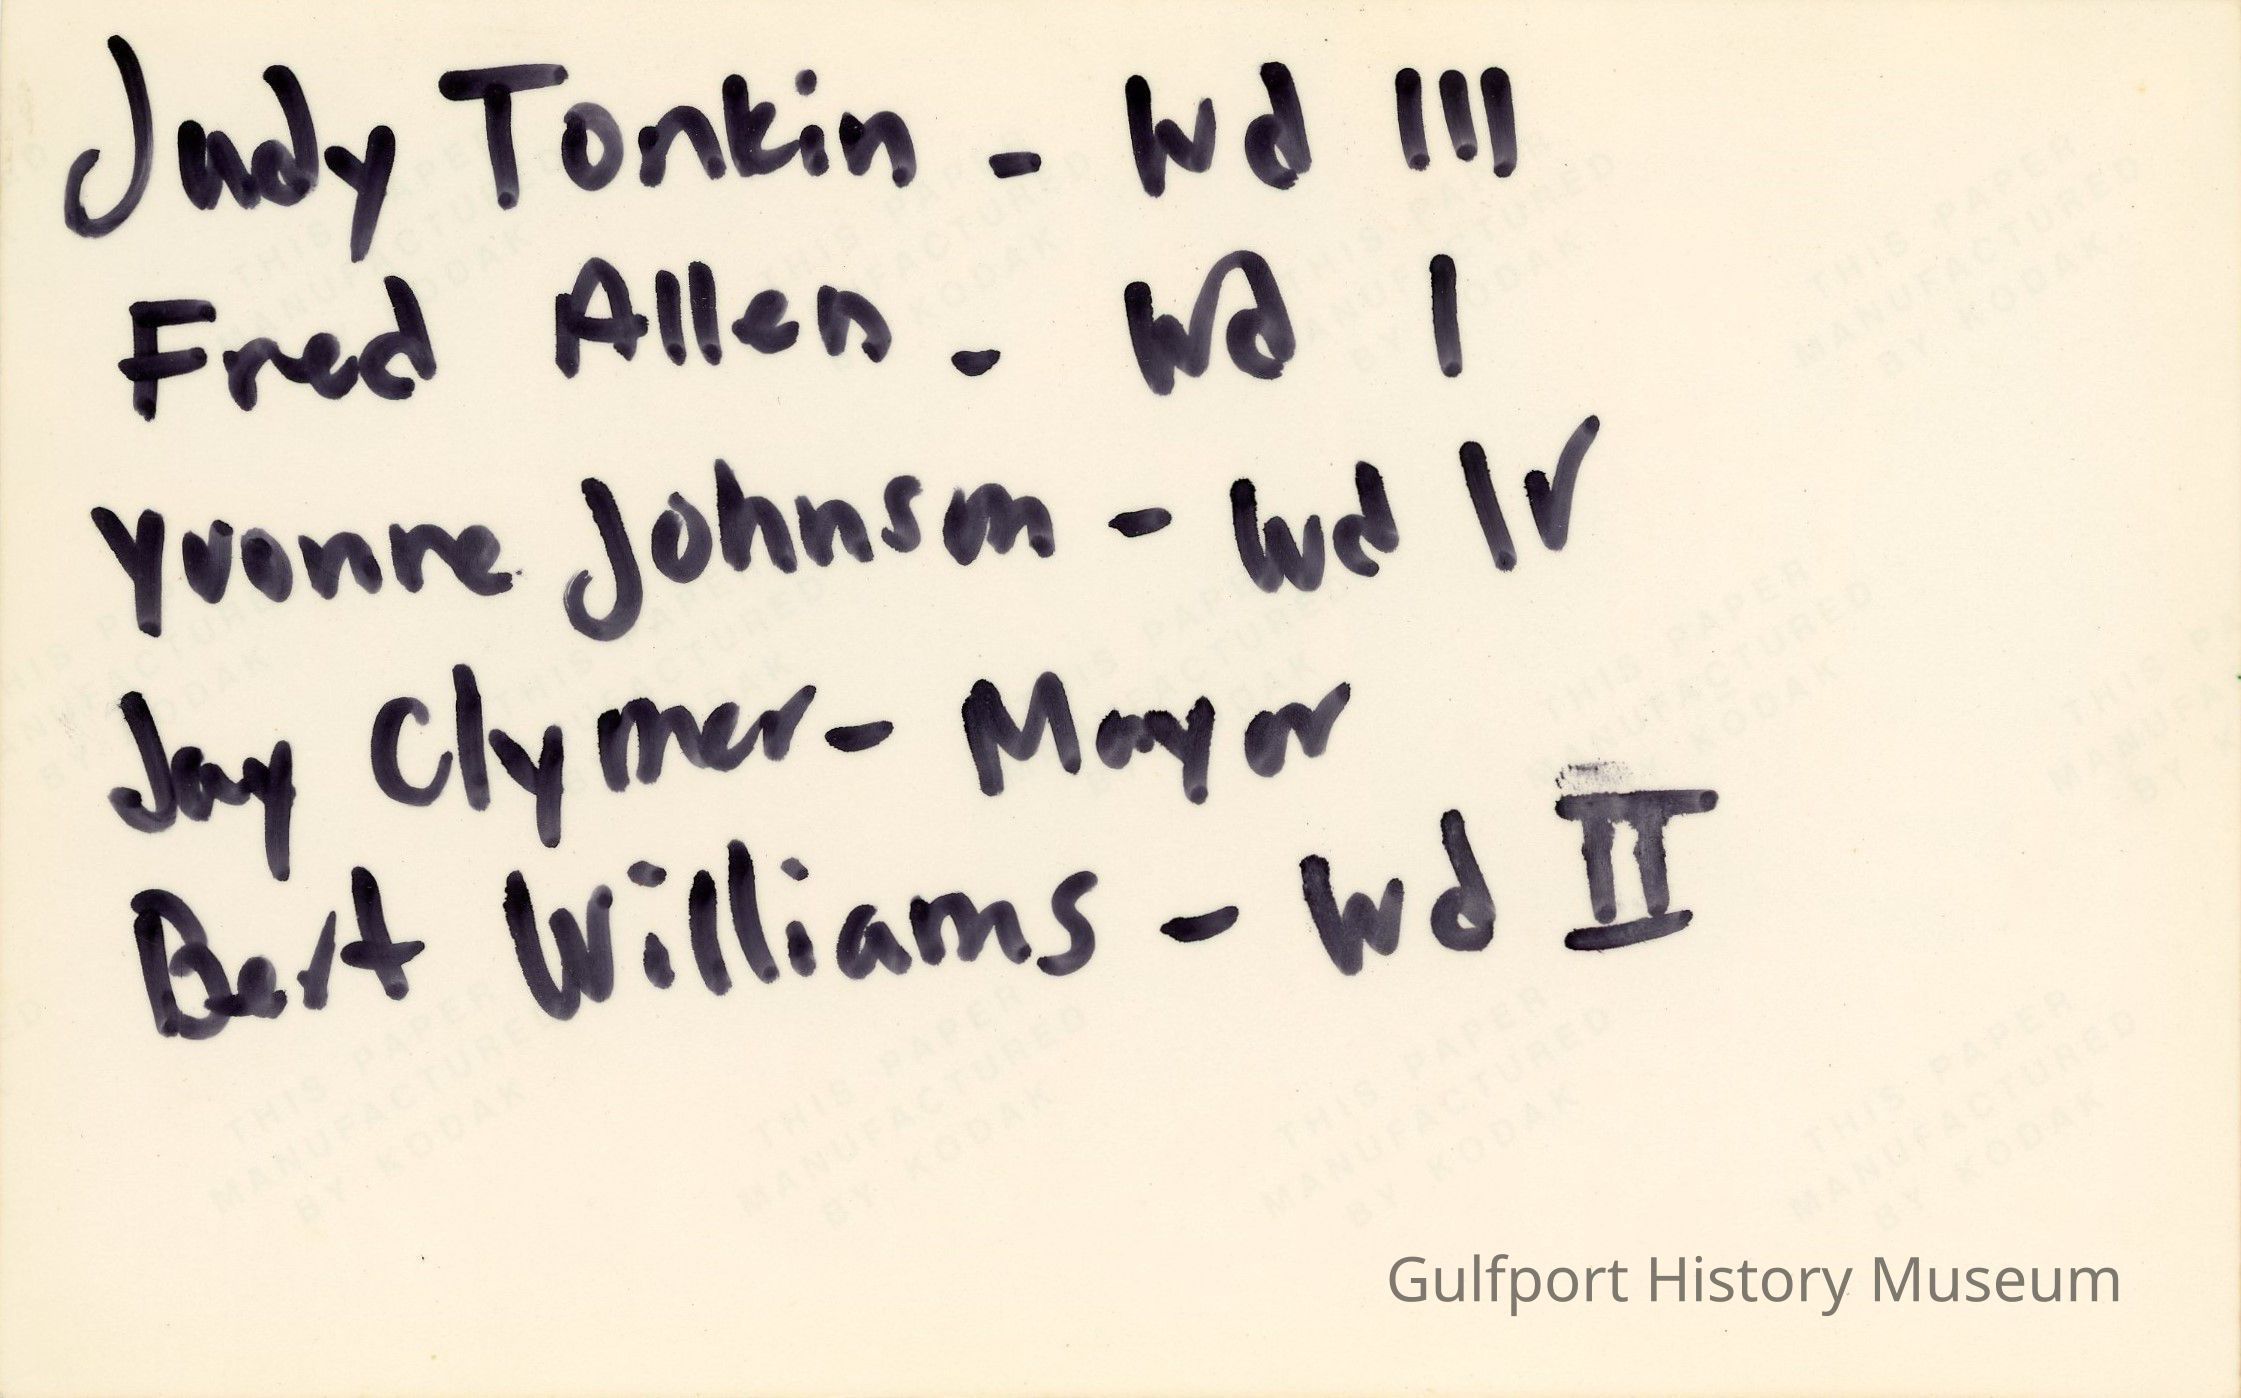 Judy Tonkin - Wd III
Fred Allen - Wd I
Yvonne Johnson - Wd IV
Jay Clymer - Mayor
Bert Williams - Wd II
THIS PAPER
MANUFACTURED
BY KODAK
Gulfport History Museum